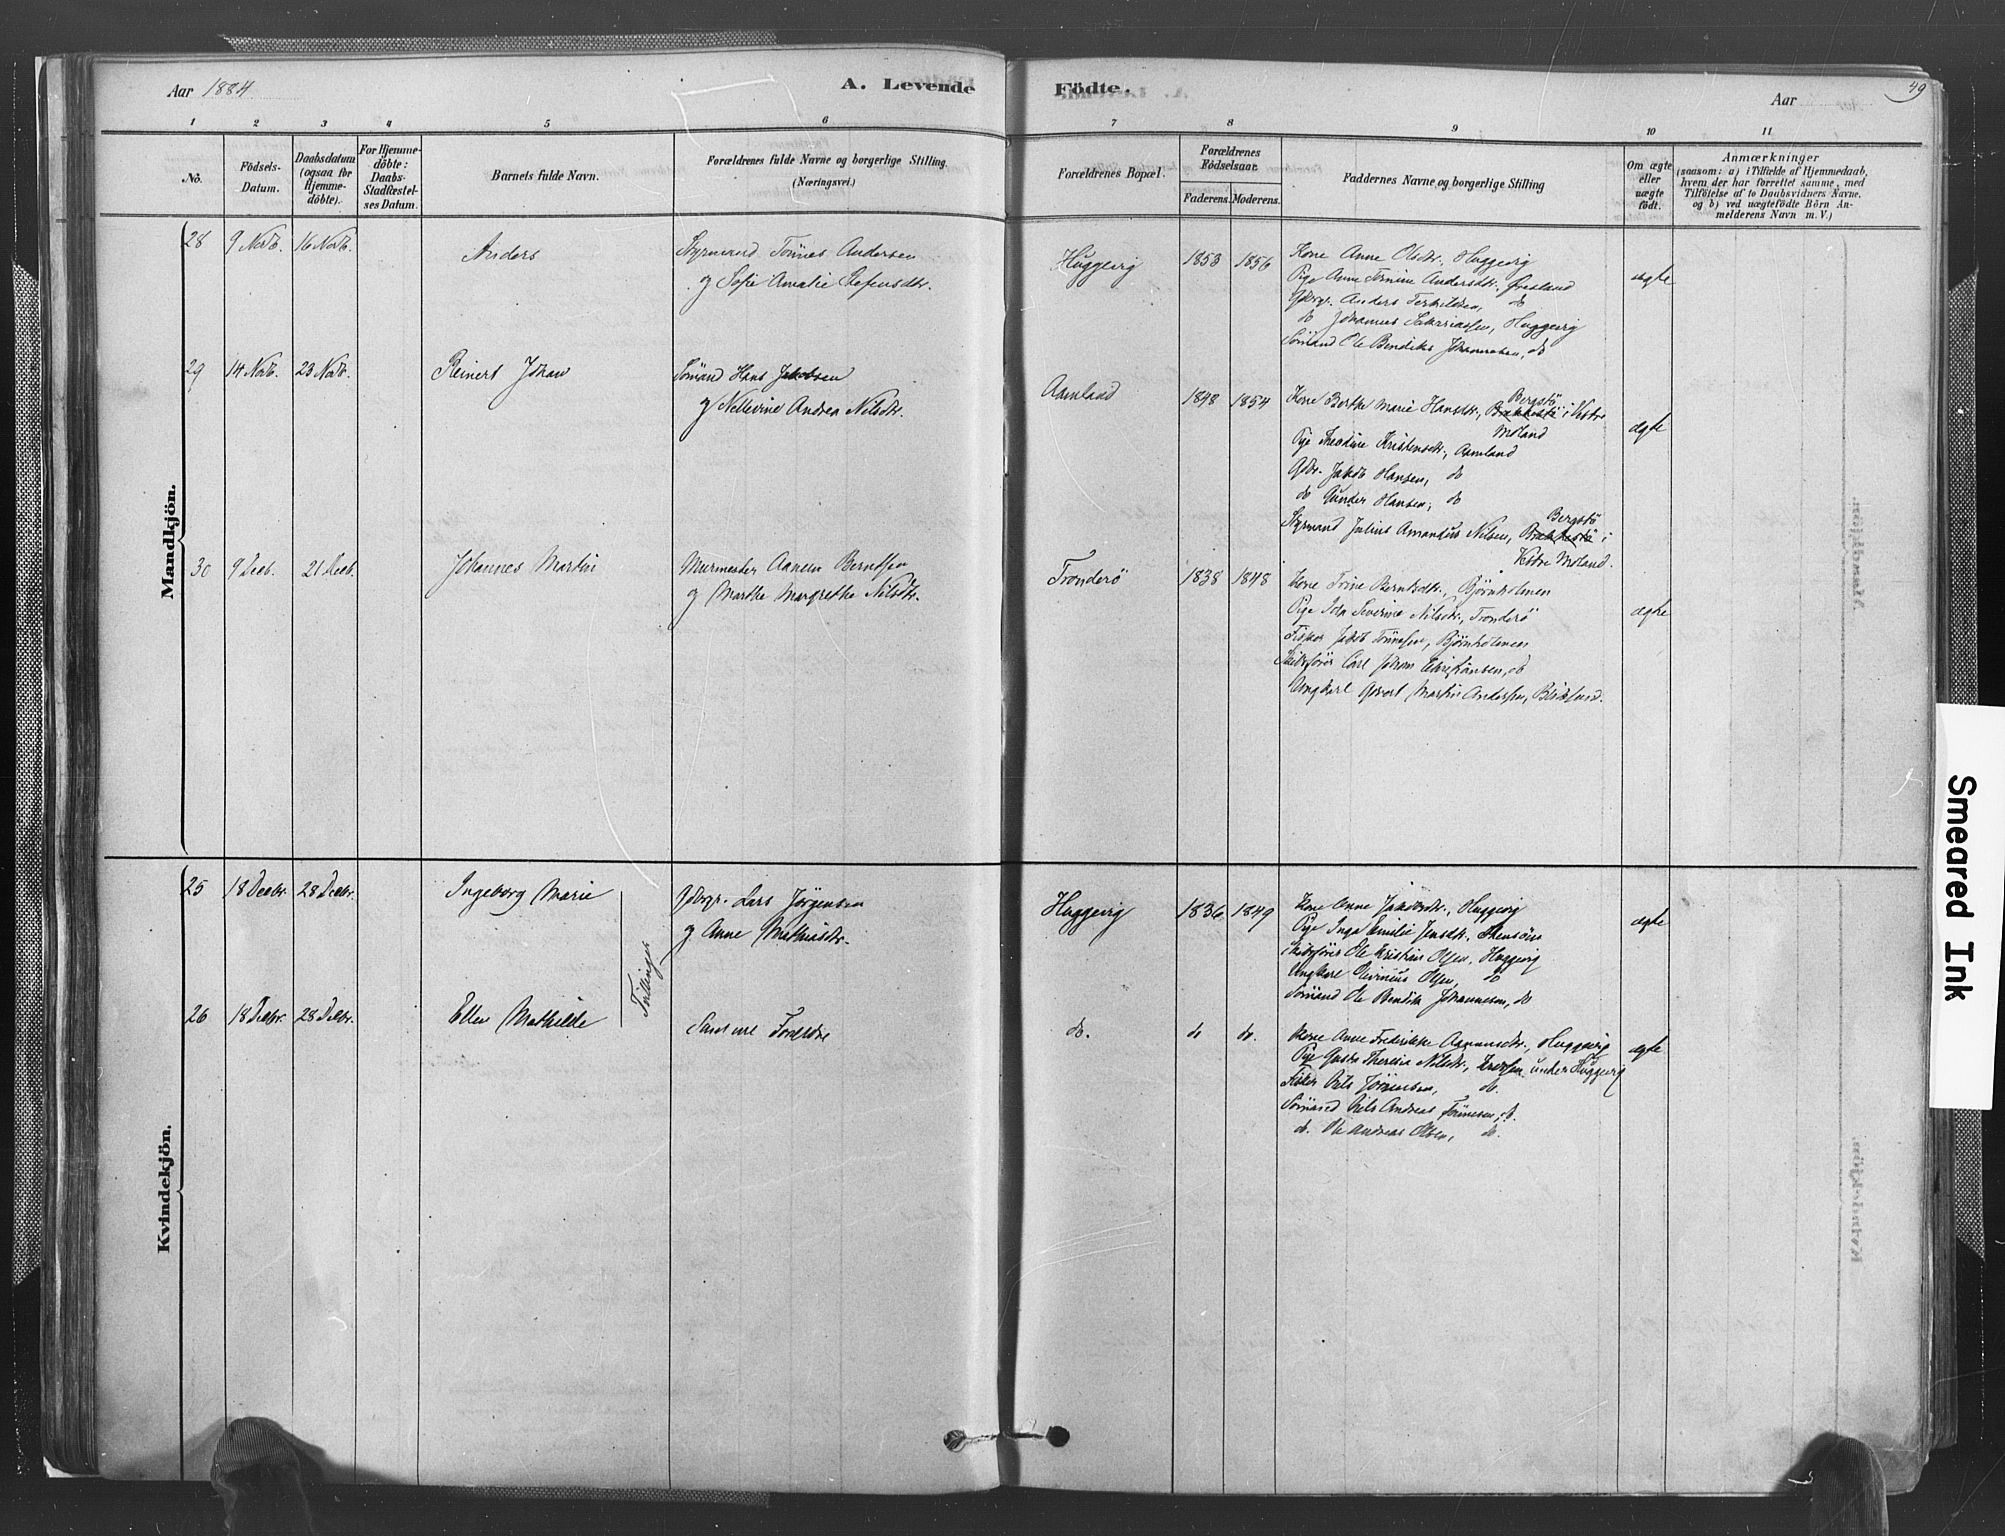 Aar 1884
A. Levende
Födte.
Aar
49
1 2 3 4 5 6 7 8 9 10 11
No.
Födsels-
Datum.
Daabsdatum
(ogsaa for
Hjemme-
döbte).
For Hjemme-
döbte:
Daabs-
Stadfæstel-
ses Datum.
Barnets fulde Navn.
Forældrenes fulde Navne og borgerlige Stilling.
(Næringsvei.)
Forældrenes Bopæl.
Forældrenes
Födselsaar.
Faderens. Moderens.
Faddernes Navne og borgerlige Stilling
Om ægte
eller
uægte
födt.
Anmærkninger
(saasom: a) i Tilfælde af Hjemmedaab,
hvem der har forrettet samme, med
Tilföielse af to Daabsvidners Navne,
og b) ved uægtefödte Börn An-
melderens Navn m. V.)
Mandkjön.
28 9 Novb. 16 Novb. Anders
Styrmand Tönnes Andersen
og Sofie Amalie Stefensdtr.
Huggevig 1853 1856
Kone Anne Olsdtr., Huggevig
Pige Anne Tomine Andersdtr.
Gdbrgr. Anders Terkildsen, do
do Johannes Sakariassen, Huggevig
Sömand Ole Bendiks Johannesen, do
ægte
29 14 Novb. 23 Novb. Reinert Johan
Sömand Hans Jakobsen
og Nellevine Andrea Nilsdtr.
Aamland 1848 1854
Kone Berthe Marie Hansdtr., Bergstö i Vestre
Moland
Pige Theodine Kristensdtr., Aamland
Gdbr. Jakob Hansen, do
do Gunder Hansen, do
Styrmand Julius Amandus Nilsen, Bergstö i
Vestre Moland.
ægte
30 9 Decb. 21 Decb. Johannes Martin
Murmester Aanen Berntsen
og Marthe Margrethe Nilsdtr.
Tronderö 1838 1848
Kone Trine Berntsdtr., Björnholmen
Pige Ida Severine Nilsdtr., Tronderö
Fisker Jakob Tönnesen, Björnholmen
Skibsförer Carl Johan Christiansen, do
Ungkarl Govert Martin Andersen, Bliksund.
ægte
Kvindekjön.
25 18 Decbr. 28 Decbr. Ingeborg Marie
Gdbrgr. Lars Jörgensen
og Anne Mathiasdtr.
Huggevig 1836 1849
Kone Anne Jakobsdtr., Huggevig
Pige Inga Emilie Jensdtr.
Skibsförer Ole Kristian Olsen, Huggevig
Ungkarl Olivinius Olsen, do
Sömand Ole Bendik Johannesen, do
ægte
Tvillinger
26 18 Decbr. 28 Decbr. Ellen Mathilde
Samme Forældre
do. do do.
Kone Anne Fredrikke Aanensdtr., Huggevig
Pige Gusta Theresia Nilsdtr., under Huggevig
Fisker Nils Jörgensen, do.
Sömand Nils Andreas Tönnesen, do.
do. Ole Andreas Olsen, do.
ægte
Smeared Ink